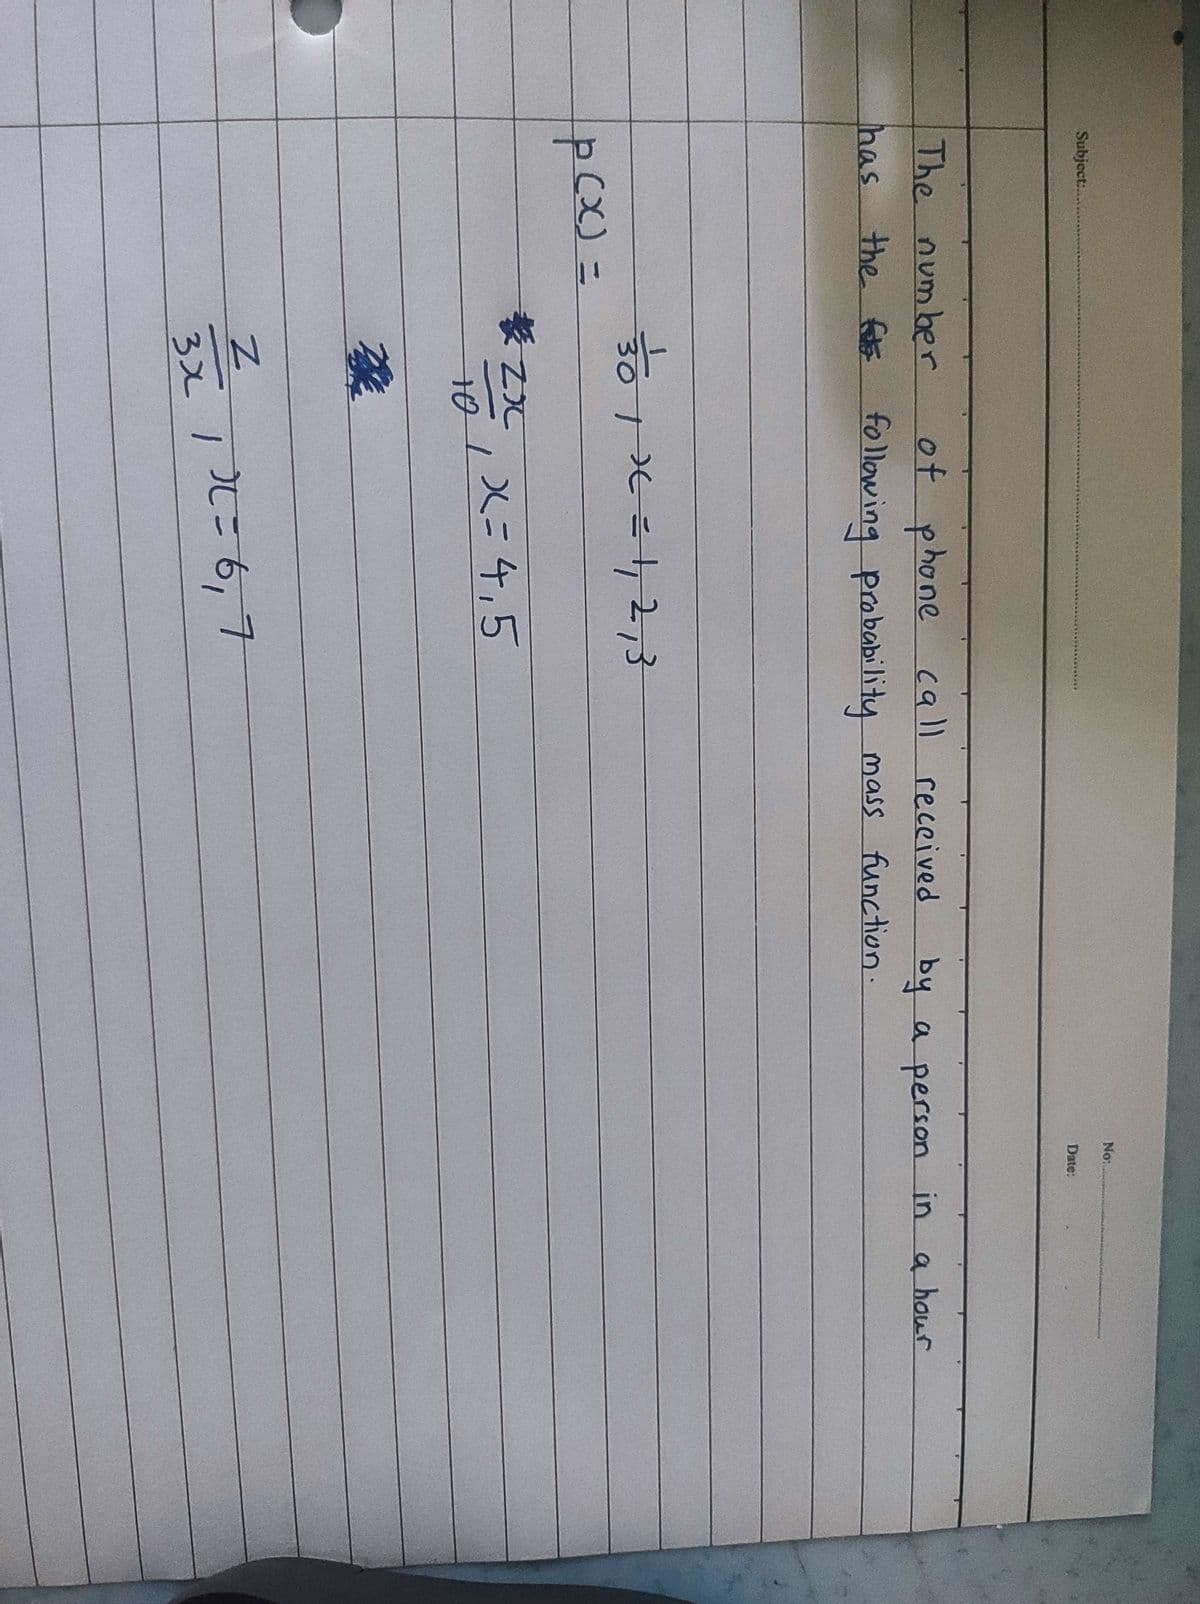 No:
Subject:
Date:
The number of phone call received by a person in a hour
has the following probability mass function.
1/30 , x = 1, 2, 3
p(x) =
2x/10 , x = 4, 5
2/3x , x = 6, 7